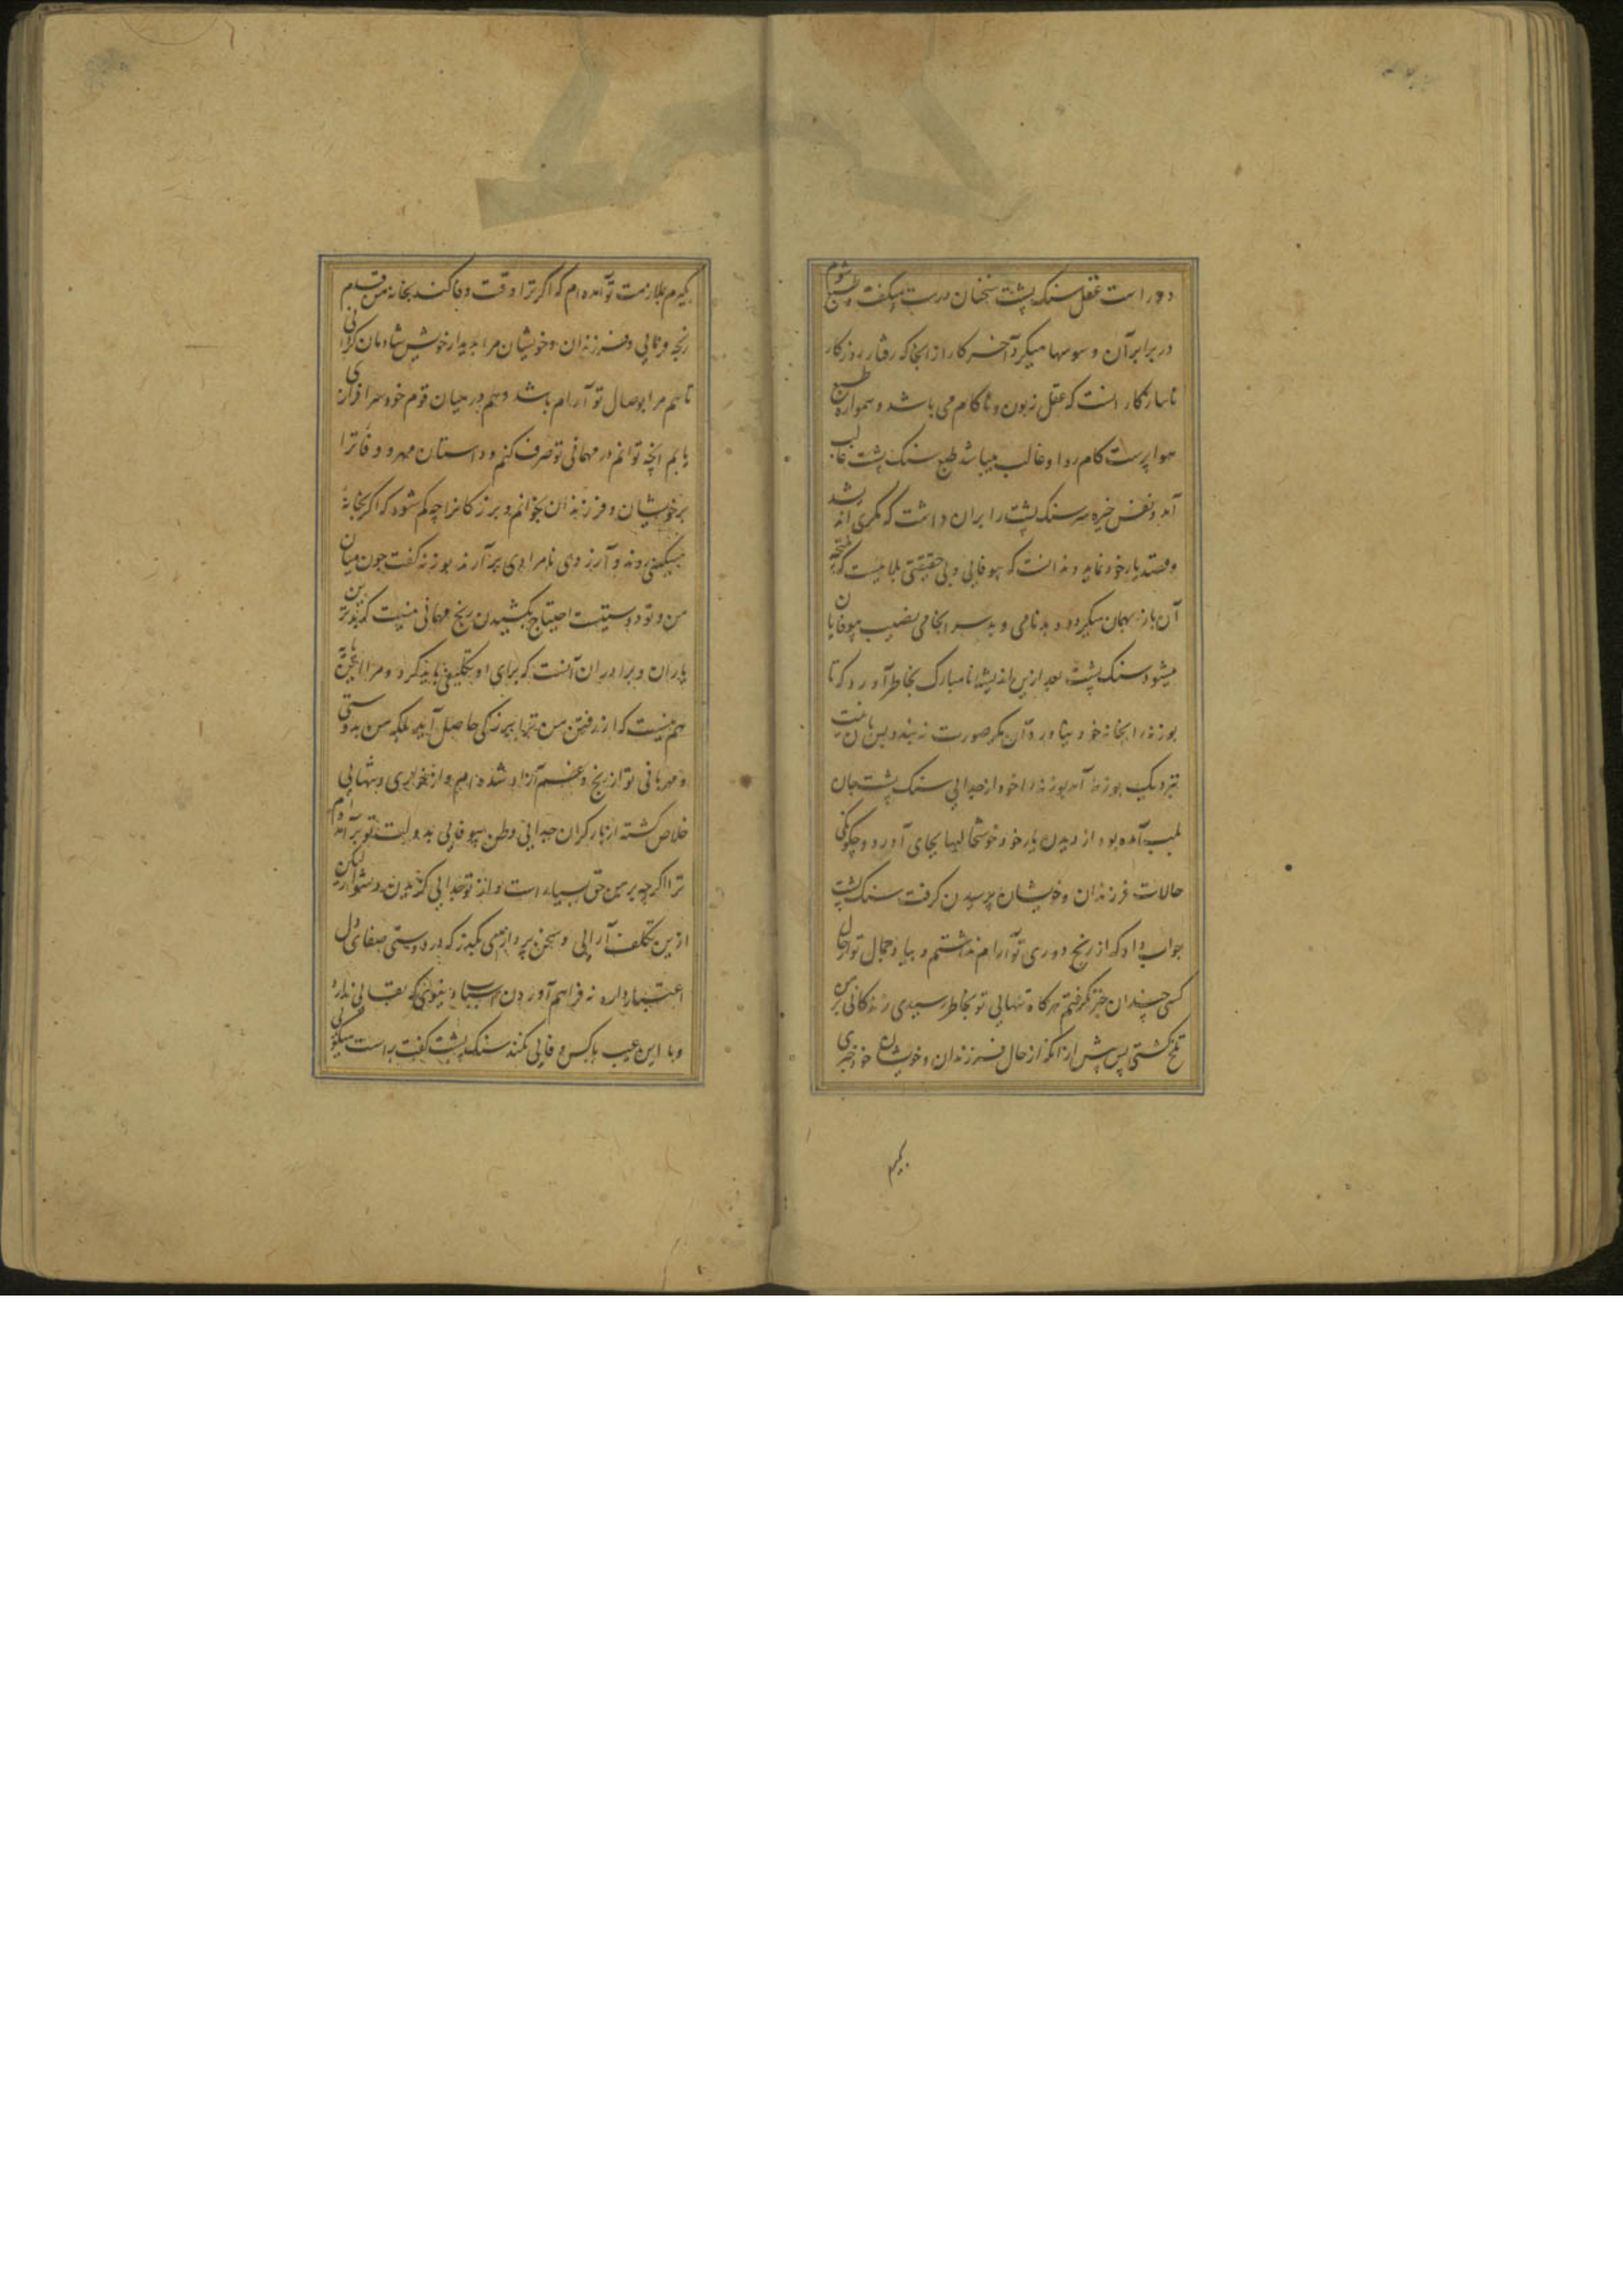 دور است عقل سنگ پشت سخنان درست میگفت و طبع شوم
در برابر آن وسوسها میکرد آخر کار از انجا که رفتار روزکار
ناسازکار انست که عقل زبون و ناکام می باشد و همواره طبع
هواپرست کام روا و غالب میباشد طبع سنک پشت غالب
آمد و نفس خیره سر سنک پشت را بران داشت که مکری اندیشد
و قصد یار خود نماید و ندانست که بیوفایی و بی حقیقتی بلاییست که نتیجه
آن باز بهمان میکردد و بدنامی و بد سرانجامی نصیب بیوفایان
میشود سنک پشت بعد ازین اندیشه نامبارک بخاطر آورد که تا
بوزنه را بخانه خود نیاورد آن مکر صورت نه بندد بدین نیت
نزدیک بوزنه آمد بوزنه را خود از جدایی سنک پشت جان
بلب آمده بود از دیدن یار خود خوشحالیها بجای آورد و چکونکی
حالات فرزندان و خویشان پرسیدن کرفت سنک پشت
جواب داد که از رنج دوری تو آرام نداشتم و بیاد جمال تو از حال
کسی چندان خبر نکرفتم هرکاه تنهایی تو بخاطر رسیدی زندکانی بر من
تلخ کشتی پس پیش از انکه از حال فرزندان و خویشان خود خبری
بکیرم
بکیرم بملازمت تو آمده ام که اکر ترا وقت وفا کند بخانه من قدم
رنجه فرمایی و فرزندان و خویشان مرا بدیدار خویش شادمان کردانی
تا هم مرا بوصال تو آرام باشد و هم در میان قوم خود سرافرازی
یابم انچه توانم در مهمانی تو صرف کنم و داستان مهر و وفا ترا
بر خویشان و فرزندان بخوانم و بزرکانرا چه کم شود که اکر بخانه
مسکینی روند و آرزوی نامرادی برآرند بوزنه کفت چون میان
من و تو دوستیست احتیاج بکشیدن رنج مهمانی نیست که بدترین
یاران و برادران آنست که برای او تکلیفی باید کرد و مرا این مایه
هم نیست که از رفتن من ترا بزرکی حاصل آید بلکه من بدوستی
و مهربانی تو از رنج و غم آزاد شده ام و از خواری و تنهایی
خلاص کشته از بار کران جدایی وطن بیوفایی بدولت تو برآمده ام
ترا اکرچه بر من حق بسیار است و از تو جدایی کزیدن دشوار لیکن
ازین تکلف آرایی و سخن پردازی بکذر که در دوستی صفای دل
اعتبار دارد نه فراهم آوردن اسباب دنیوی که بقایی ندارد
و با این عیب با کس وفایی نکند سنک پشت کفت راست میکویی